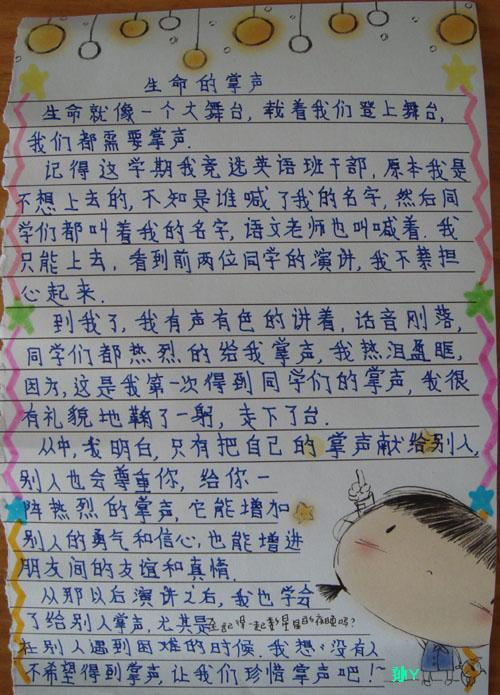 生命的掌声
生命就像一个大舞台，载着我们登上舞台，
我们都需要掌声.
记得这学期我竞选英语班干部，原本我是
不想上去的，不知是谁喊了我的名字，然后同
学们都叫着我的名字，语文老师也叫喊着.我
只能上去，看到前两位同学的演讲，我不禁担
心起来.
到我了，我有声有色的讲着，话音刚落，
同学们都热烈的给我掌声，我热泪盈眶，
因为，这是我第一次得到同学们的掌声，我很
有礼貌地鞠了一躬，走下了台.
从中，我明白，只有把自己的掌声献给别人，
别人也会尊重你，给你一
阵热烈的掌声，它能增加
别人的勇气和信心，也能增进
朋友间的友谊和真情.
从那以后演讲之后，我也学会
了给别人掌声，尤其是
还记得一起看星星的夜晚吗？
在别人遇到困难的时候.我想，没有人
不希望得到掌声，让我们珍惜掌声吧！